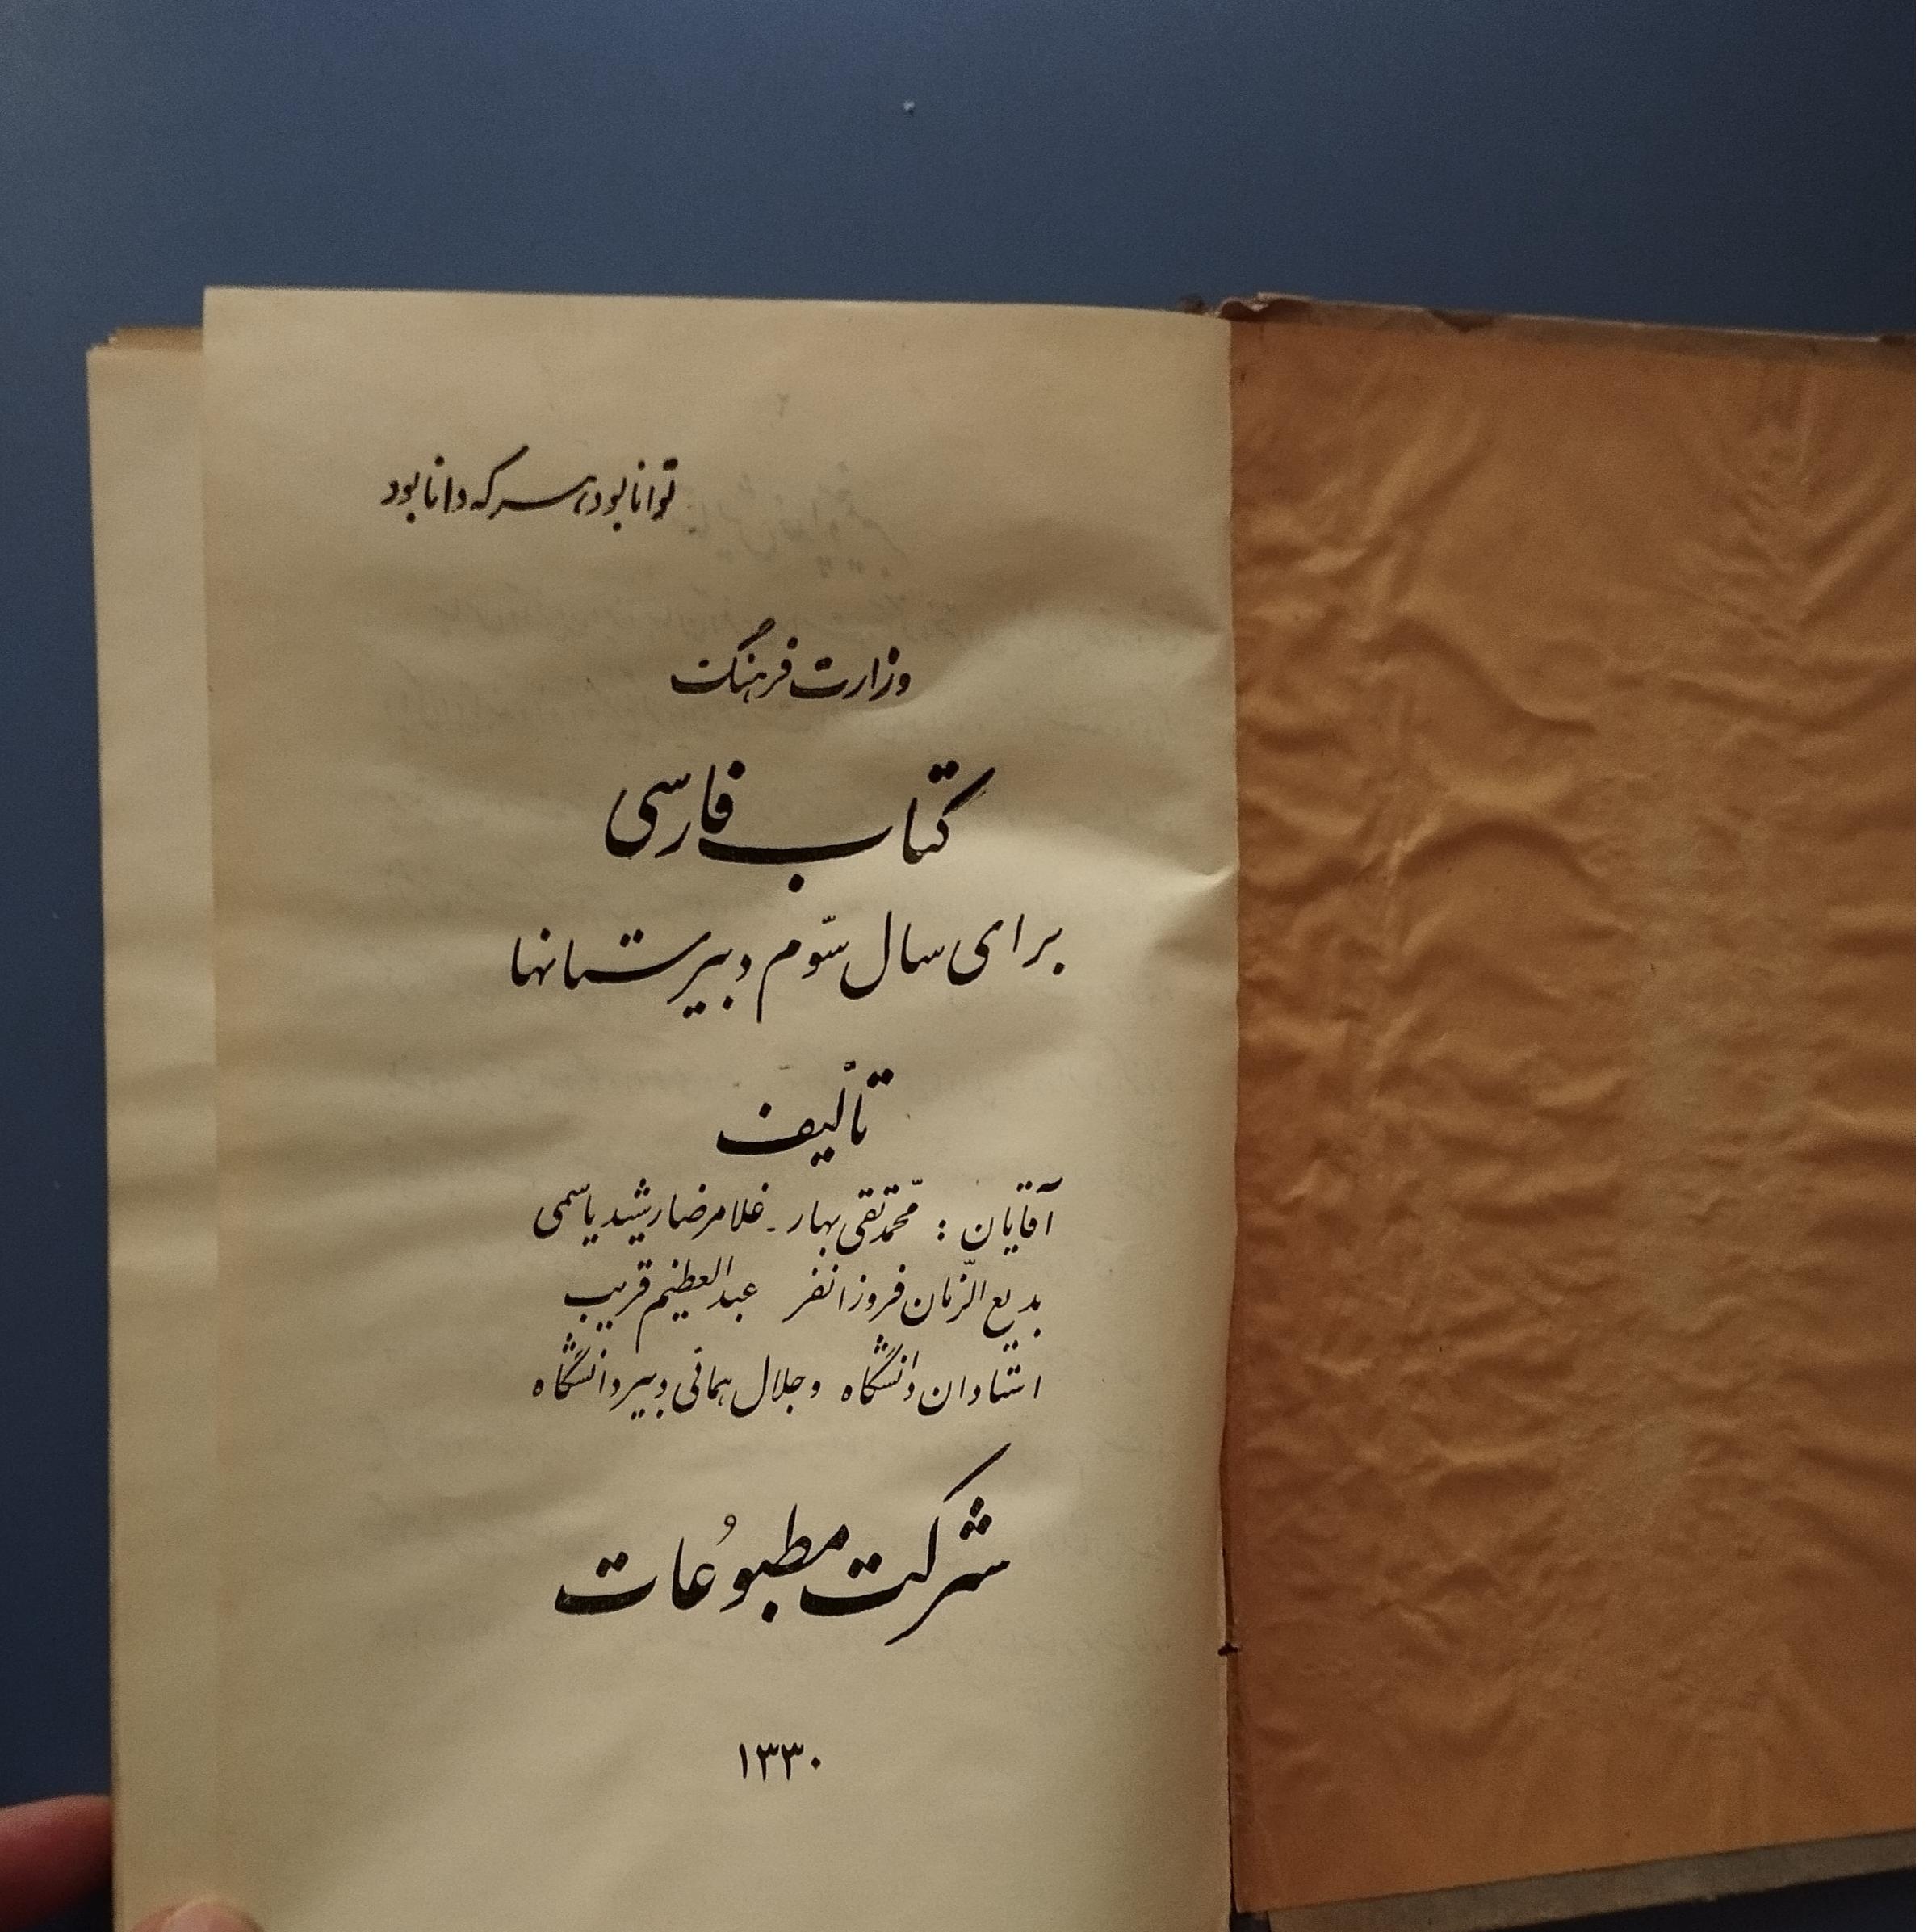 توانا بود هر که دانا بود
وزارت فرهنگ
کتاب فارسی
برای سال سّوم دبیرستانها
تألیف
آقایان : محمّدتقی بهار - غلامرضا رشید یاسمی
بدیع الزّمان فروزانفر عبدالعظیم قریب
استادان دانشگاه و جلال همائی دبیر دانشگاه
شرکت مطبوُعات
۱۳۳۰